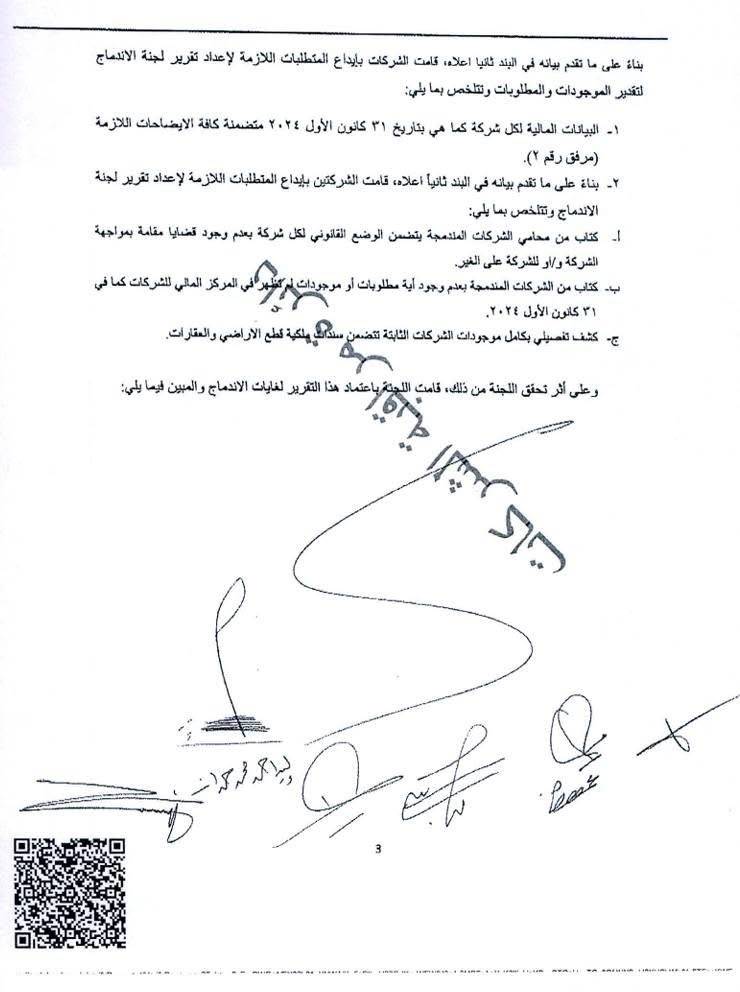 بناءً على ما تقدم بيانه في البند ثانيا اعلاه، قامت الشركات بإيداع المتطلبات اللازمة لإعداد تقرير لجنة الاندماج
لتقدير الموجودات والمطلوبات وتتلخص بما يلي:
١- البيانات المالية لكل شركة كما هي بتاريخ ٣١ كانون الأول ٢٠٢٤ متضمنة كافة الايضاحات اللازمة
(مرفق رقم ٢).
٢- بناءً على ما تقدم بيانه في البند ثانياً اعلاه، قامت الشركتين بإيداع المتطلبات اللازمة لإعداد تقرير لجنة
الاندماج وتتلخص بما يلي:
أ- كتاب من محامي الشركات المندمجة يتضمن الوضع القانوني لكل شركة بعدم وجود قضايا مقامة بمواجهة
الشركة و/او للشركة على الغير.
ب- كتاب من الشركات المندمجة بعدم وجود أية مطلوبات أو موجودات لم تظهر في المركز المالي للشركات كما في
٣١ كانون الأول ٢٠٢٤.
ج- كشف تفصيلي بكامل موجودات الشركات الثابتة تتضمن سندات ملكية قطع الاراضي والعقارات.
وعلى أثر تحقق اللجنة من ذلك، قامت اللجنة باعتماد هذا التقرير لغايات الاندماج والمبين فيما يلي:
مراقبة الشركات
3